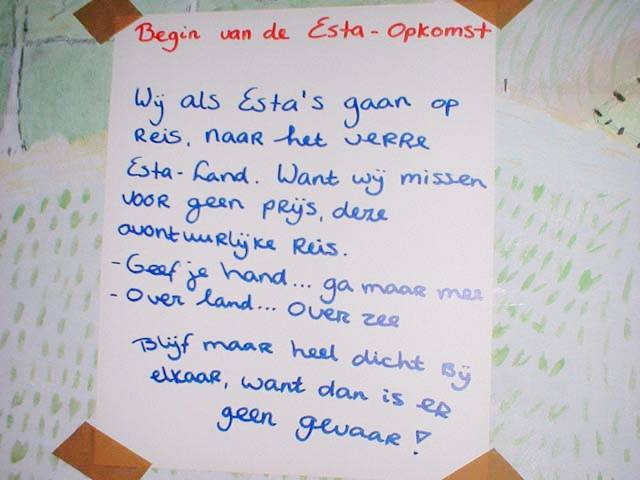 Begin van de Esta - Opkomst
Wij als Esta's gaan op
Reis, naar het verre
Esta-Land. Want wij missen
voor geen prijs, deze
avontuurlijke Reis.
- Geef je hand... ga maar mee
- Over land... over zee
Blijf maar heel dicht Bij
elkaar, want dan is er
geen gevaar!